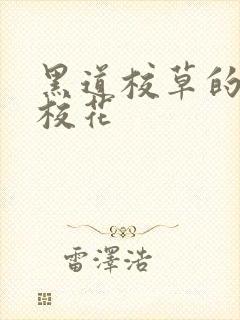 黑道校草的
校花
雷澤浩